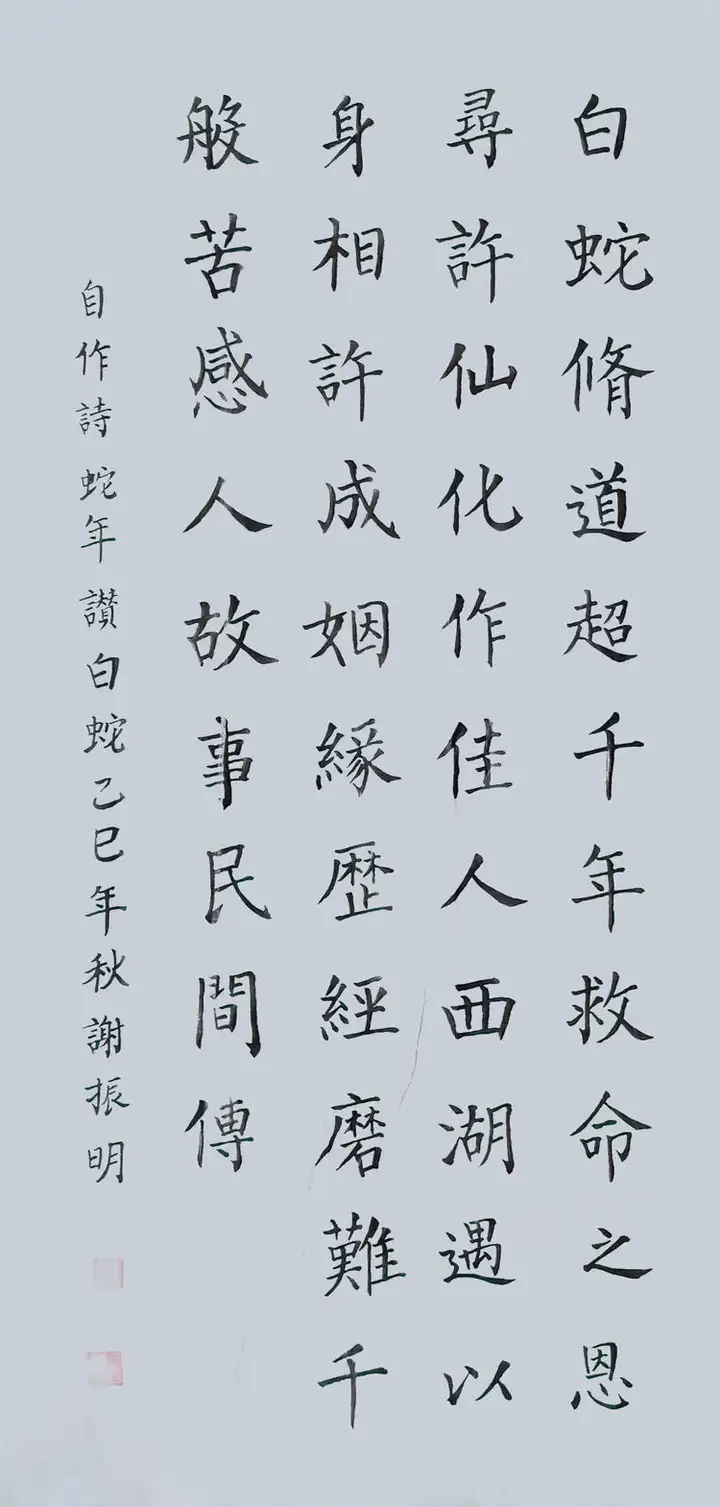 白蛇脩道超千年救命之恩
尋許仙化作佳人西湖遇以
身相許成姻緣歷經磨難千
般苦感人故事民間傳
自作詩蛇年讃白蛇乙巳年秋謝振明